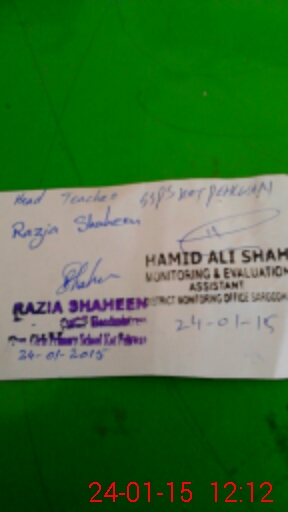 Head Teacher GGPS KOT PEHLWAN
Razia Shaheen
HAMID ALI SHAH
MONITORING & EVALUATION
ASSISTANT
DISTRICT MONITORING OFFICE SARGODHA
24-01-15
RAZIA SHAHEEN
Girls Primary School Kot
24-01-2015
24-01-15 12:12